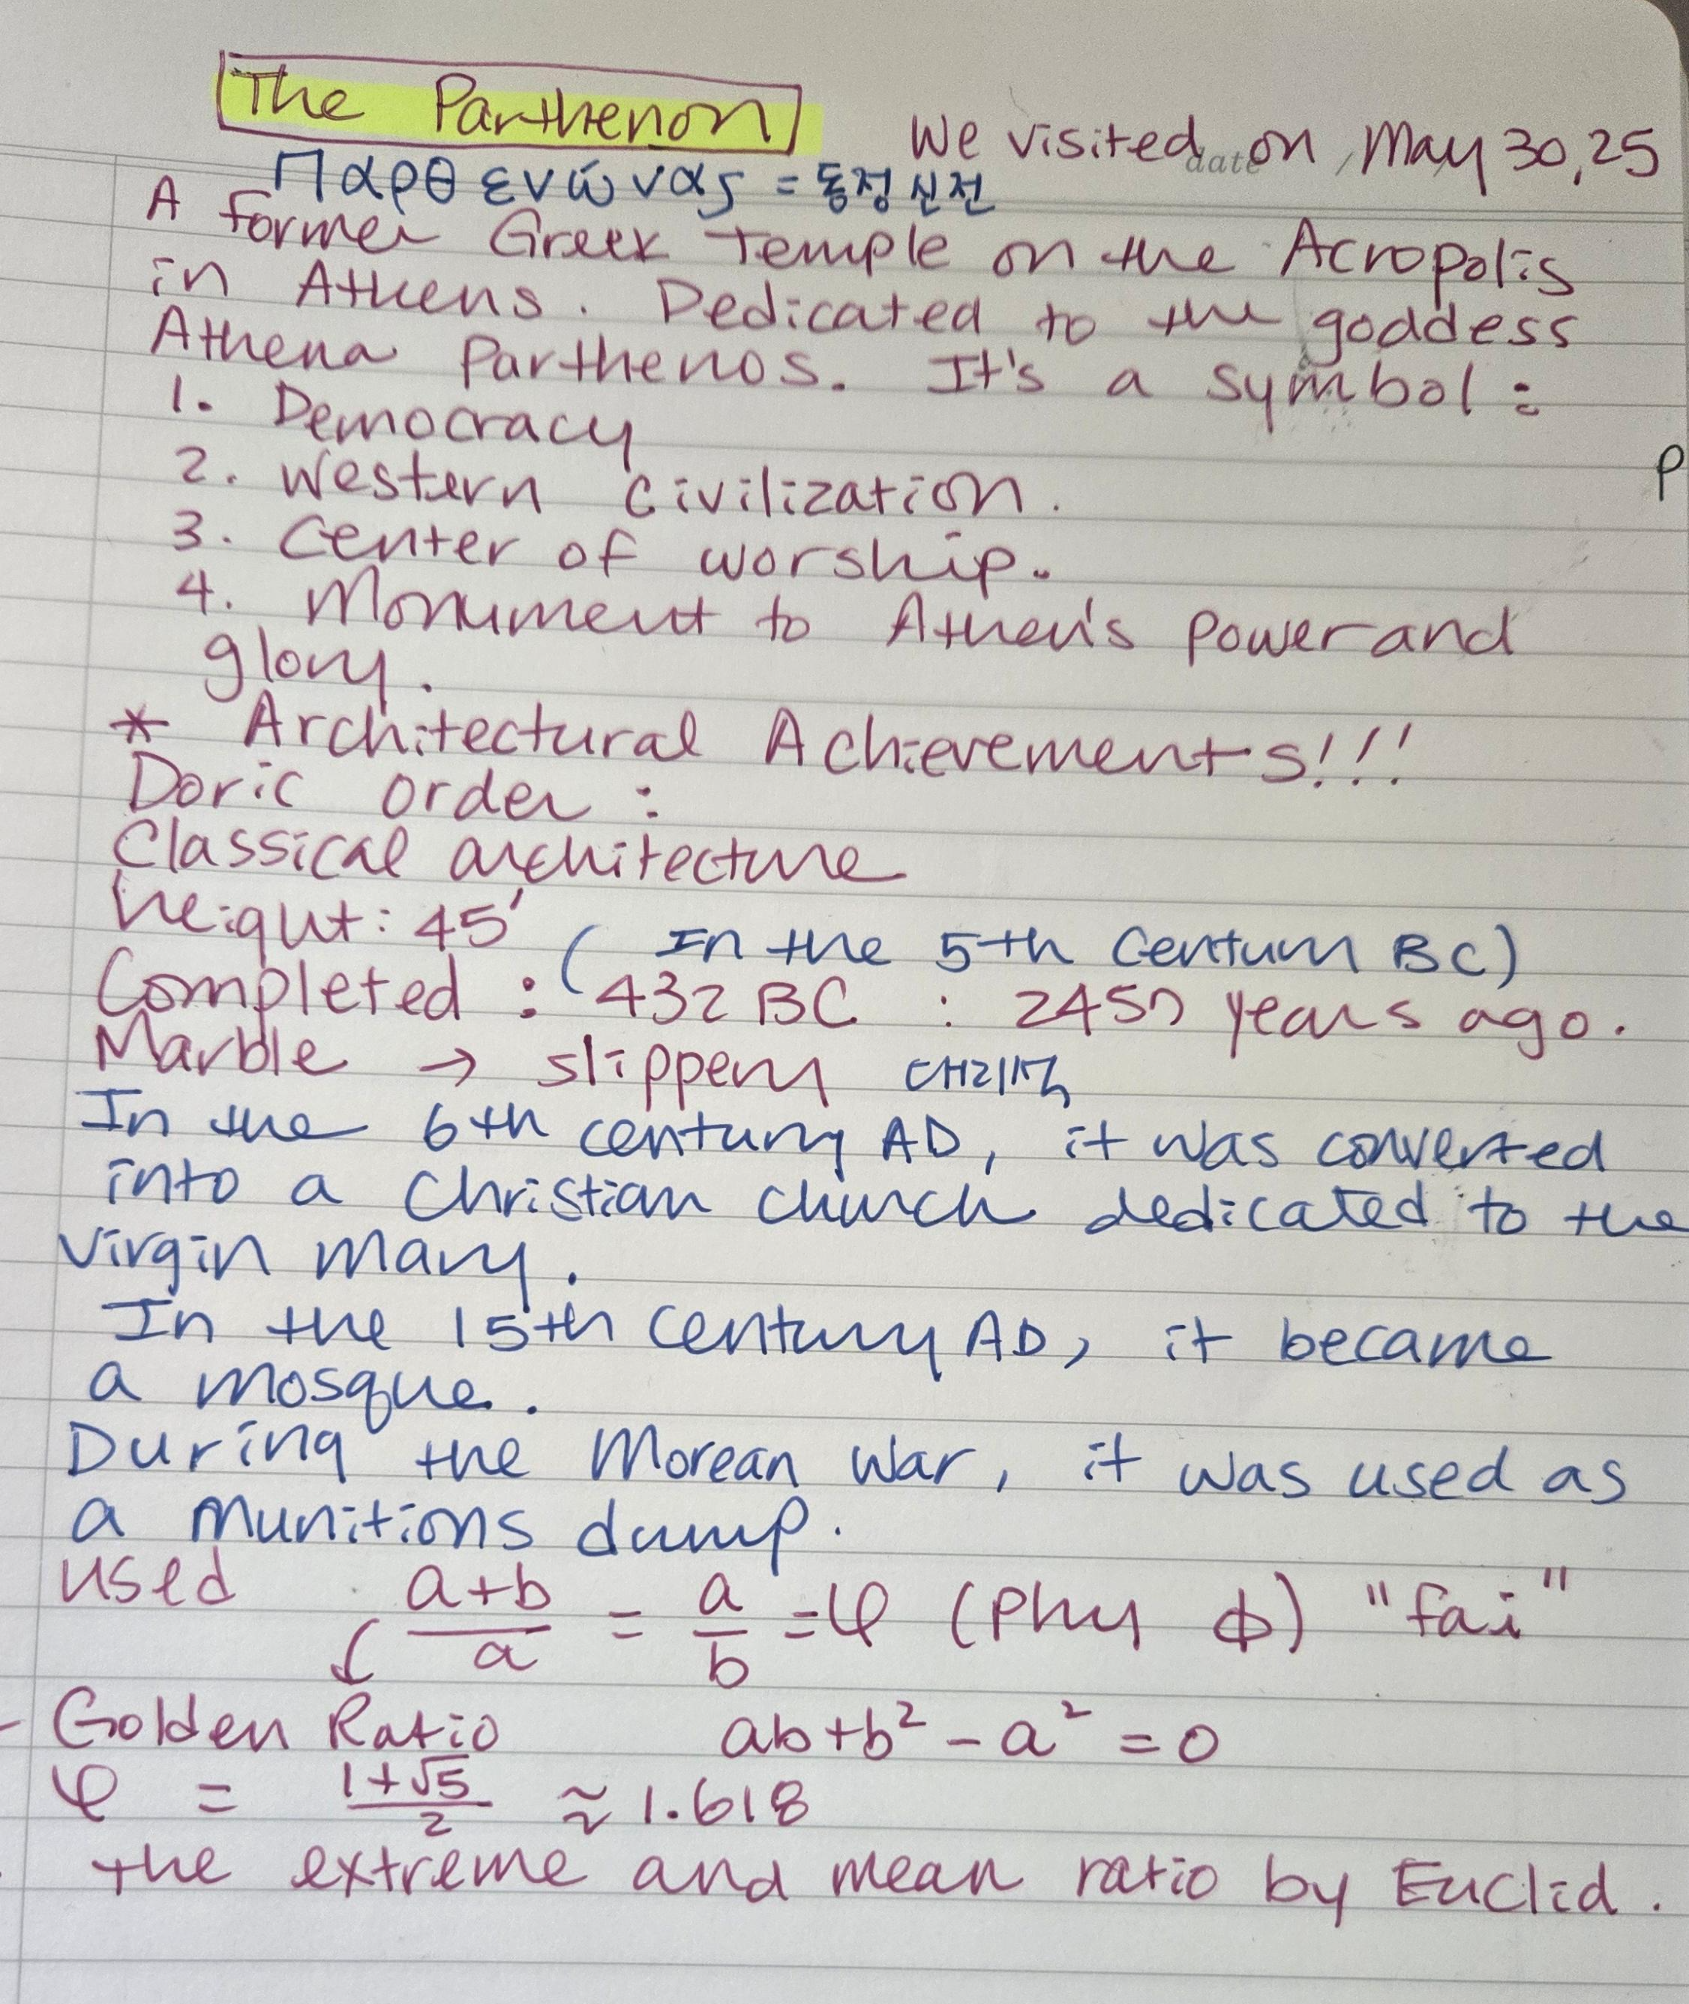 The Parthenon
We visited on May 30, 25
date
Παρθενώνας = 동정 신전
A former Greek Temple on the Acropolis
in Athens. Dedicated to the goddess
Athena Parthenos. It's a symbol:
1. Democracy
2. Western Civilization.
3. Center of worship.
4. Monument to Athen's power and
glory.
* Architectural Achievements!!!
Doric order :
Classical architecture
height: 45'
(In the 5th Century BC)
Completed : 432 BC : 2457 years ago.
Marble → slippery 대리석
In the 6th century AD, it was converted
into a Christian church dedicated to the
virgin mary.
In the 15th century AD, it became
a mosque.
During the Morean war, it was used as
a munitions dump.
used a+b/a = a/b = φ (Phy ɸ) "fai"
- Golden Ratio ab+b² - a² = 0
φ = 1+√5/2 ≈ 1.618
the extreme and mean ratio by Euclid.
P